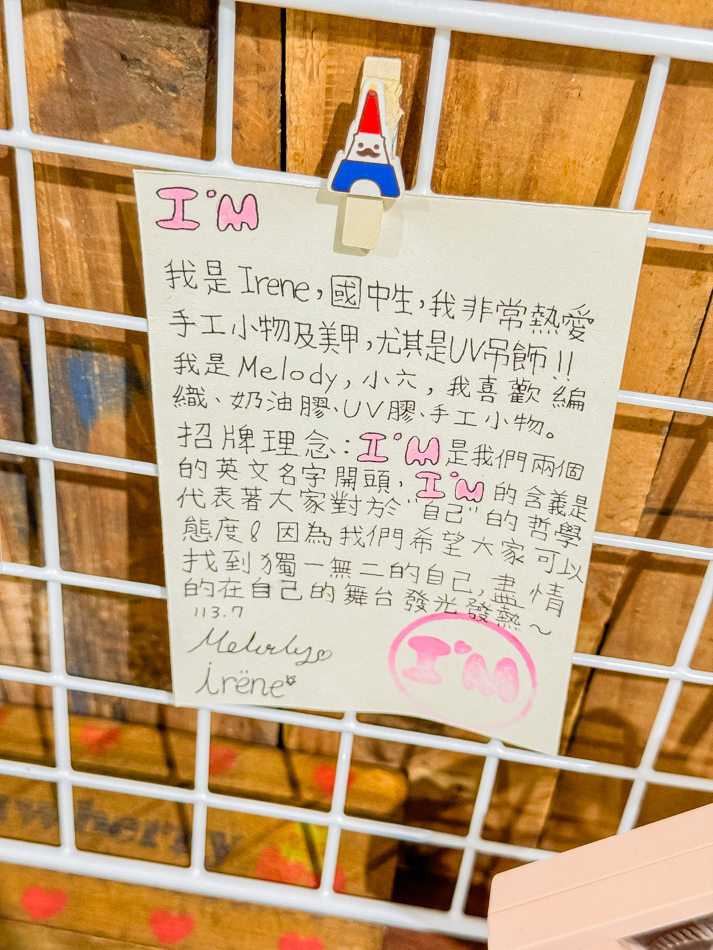 I'M
我是Irene,國中生,我非常熱愛
手工小物及美甲,尤其是UV吊飾!!
我是Melody,小六,我喜歡編
織、奶油膠、UV膠、手工小物。
招牌理念:I'M是我們兩個
的英文名字開頭,I'M的含義是
代表著大家對於"自己"的哲學
態度!因為我們希望大家可以
找到獨一無二的自己,盡情
的在自己的舞台發光發熱~
113.7
Melody
irëne
I'M